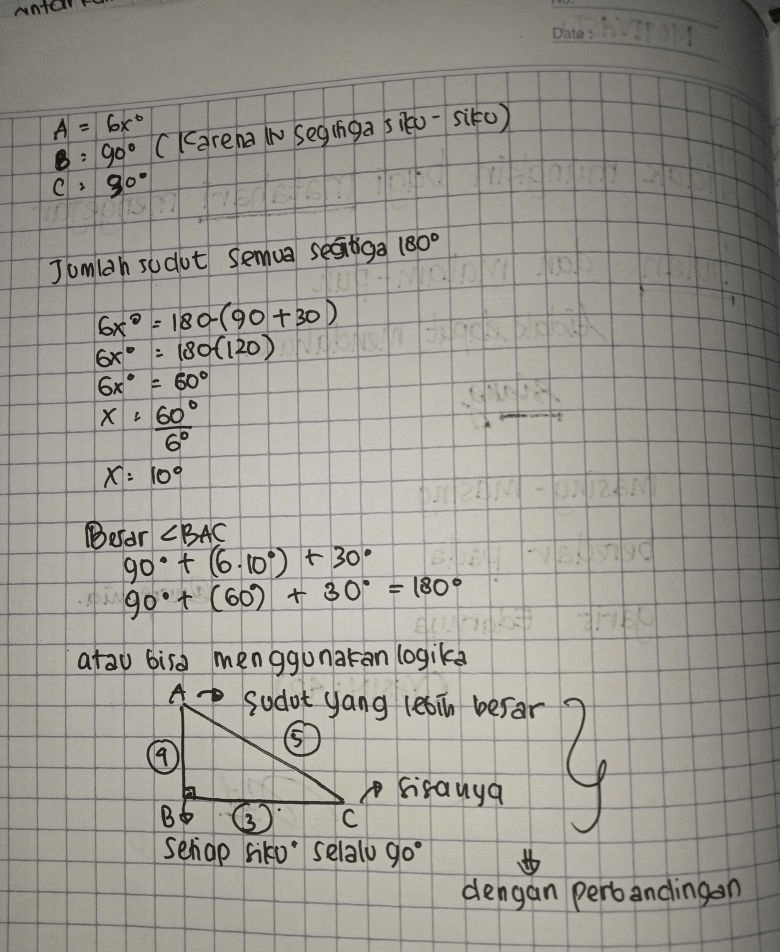 antar
No.
Date :
A = 6x°
B : 90° ( Karena IN segitiga siku - siku)
C : 30°
Jumlah sudut semua segitiga 180°
6x° = 180-(90+30)
6x° = 180(120)
6x° = 60°
x = 60°
6°
x = 10°
Besar <BAC
90° + (6.10°) + 30°
90° + (60°) + 30° = 180°
atau bisa menggunakan logika
A → sudut yang lebih besar
5
4
→ sisanya
B 3 C
setiap siku° selalu 90°
dengan perbandingan